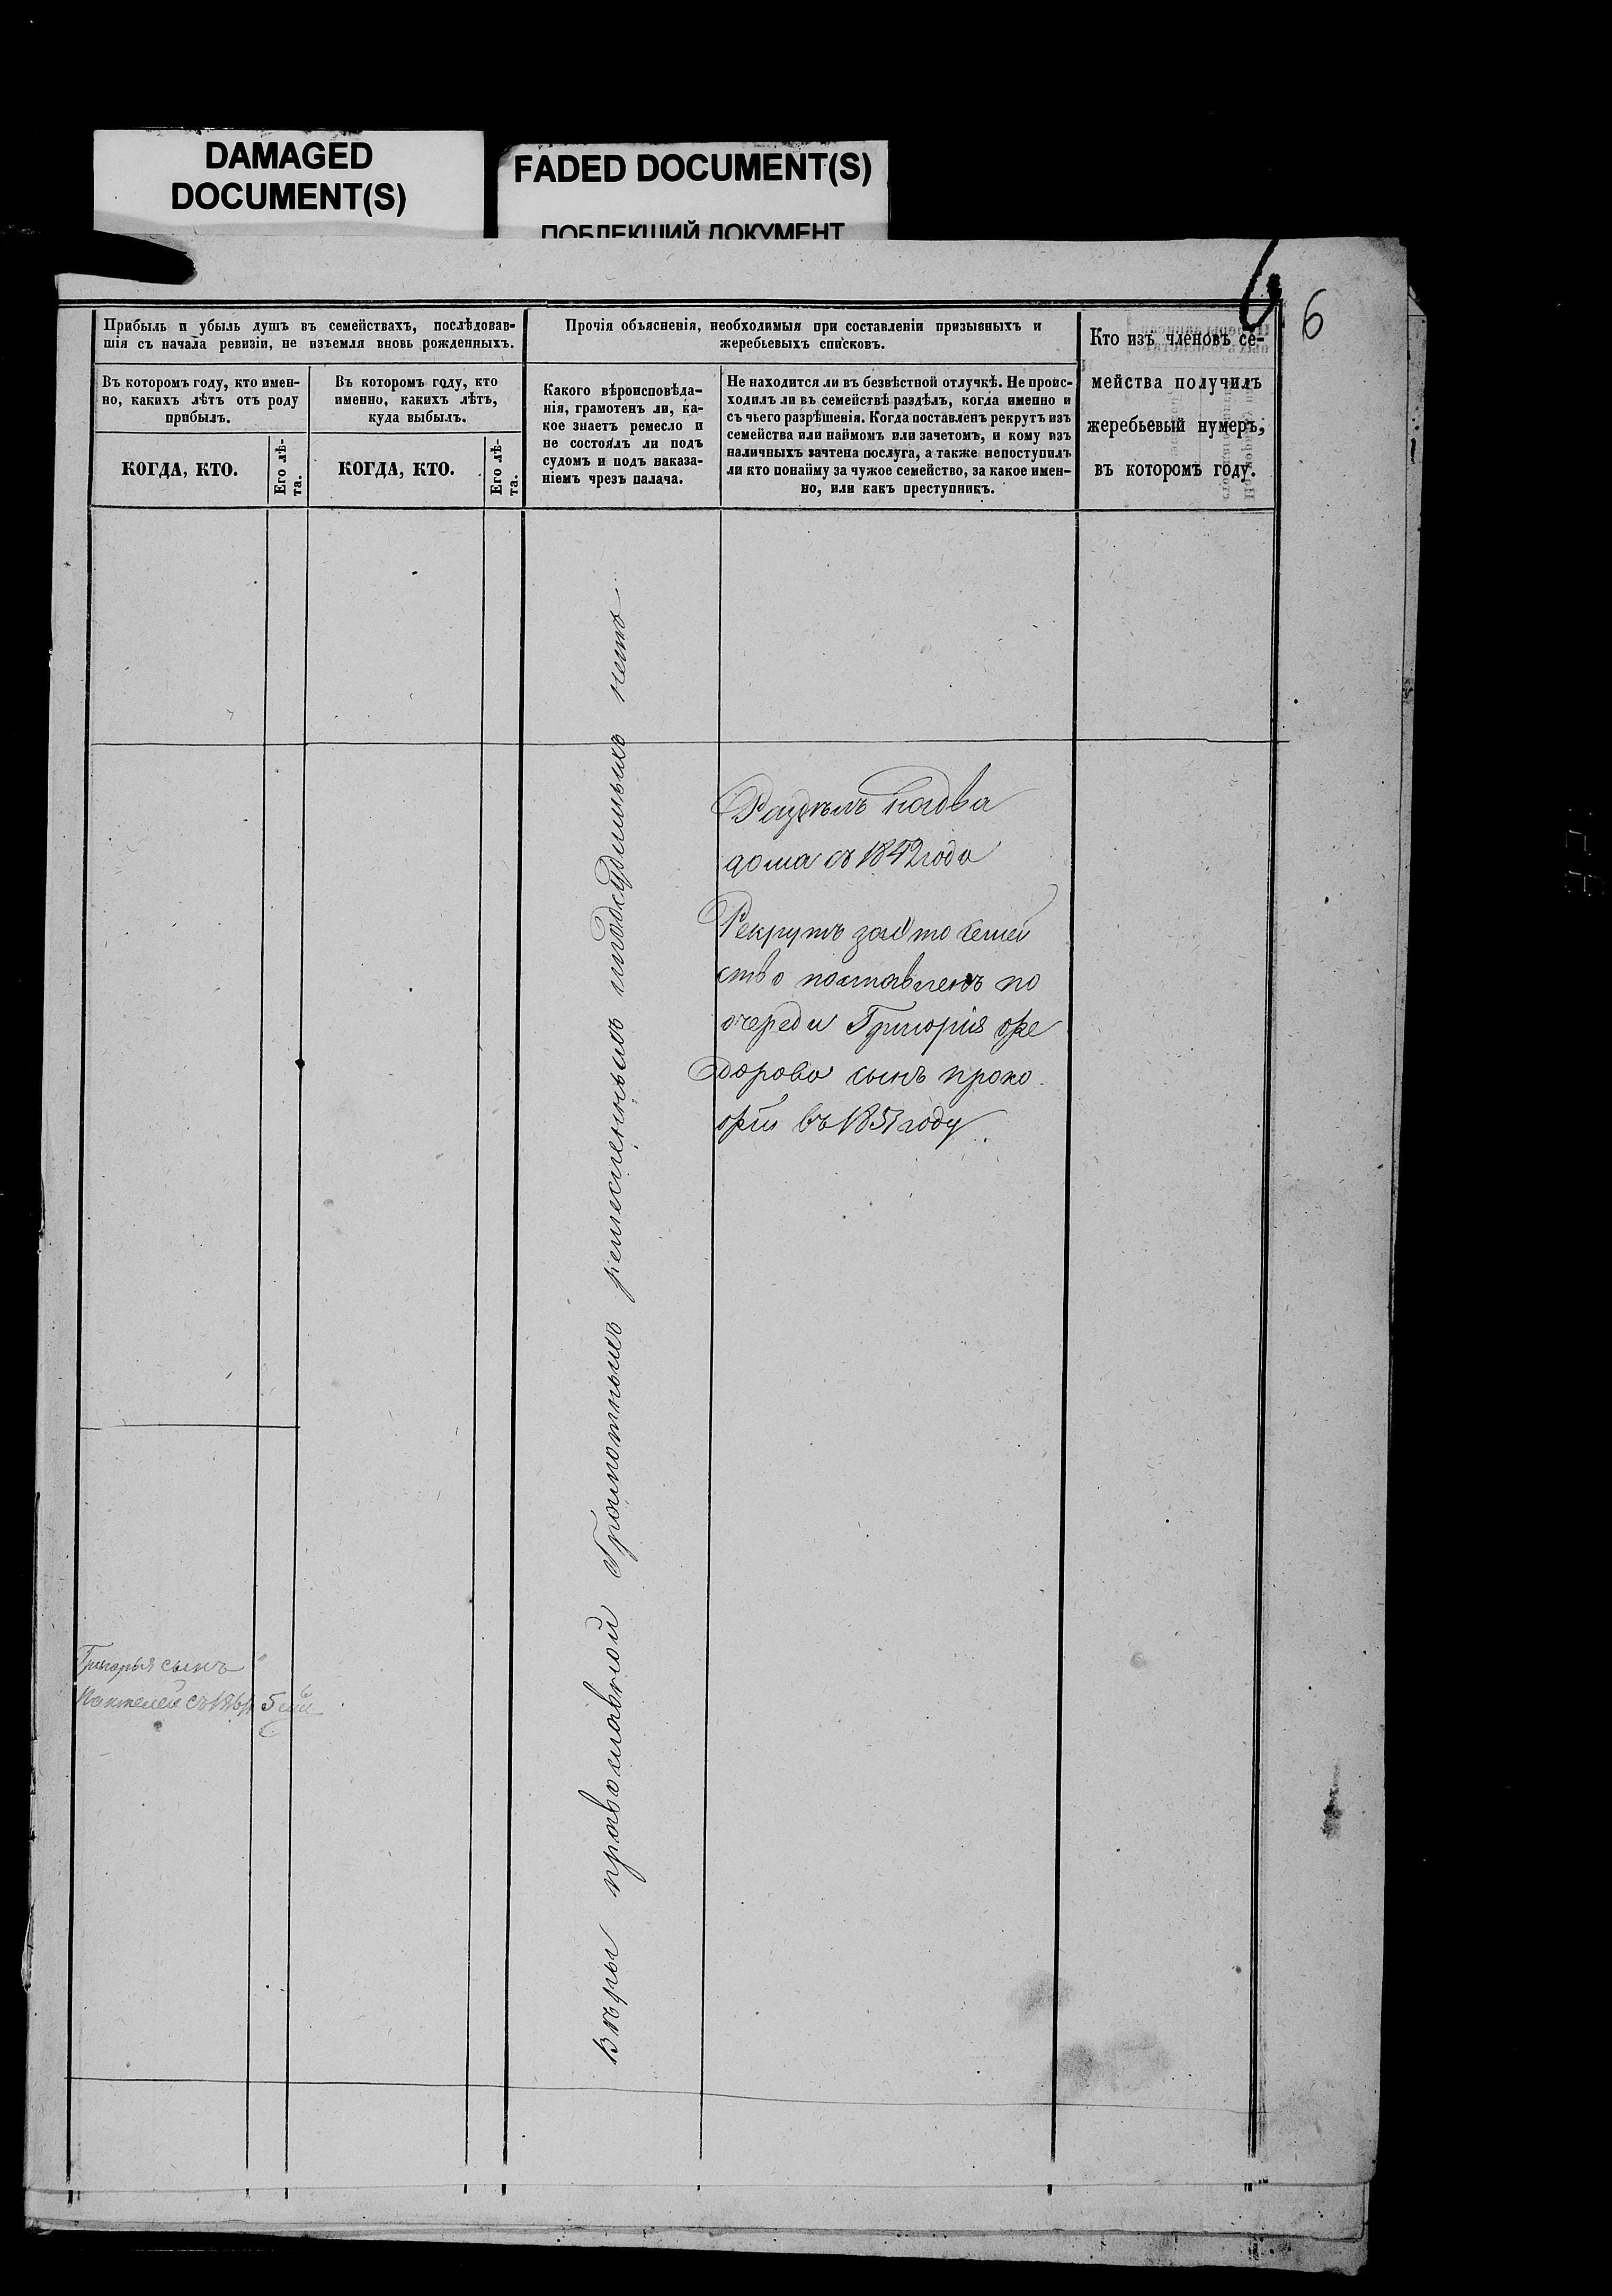 DAMAGED
DOCUMENT(S)
FADED DOCUMENT(S)
ПОБЛЕКШИЙ ДОКУМЕНТ
6
6
Прибыль и убыль душъ въ семействахъ, послѣдовав-
шія съ начала ревизіи, не изъемля вновь рожденныхъ.
Въ которомъ году, кто имен-
но, какихъ лѣтъ отъ роду
прибылъ.
КОГДА, КТО.
Его лѣ-
та.
Въ которомъ году, кто
именно, какихъ лѣтъ,
куда выбылъ.
КОГДА, КТО.
Его лѣ-
та.
Прочія объясненія, необходимыя при составленіи призывныхъ и
жеребьевыхъ списковъ.
Какого вѣроисповѣда-
нія, грамотенъ ли, ка-
кое знаетъ ремесло и
не состоялъ ли подъ
судомъ и подъ наказа-
ніемъ чрезъ палача.
Не находится ли въ безвѣстной отлучкѣ. Не проис-
ходилъ ли въ семействѣ раздѣлъ, когда именно и
съ чьего разрѣшенія. Когда поставленъ рекрутъ изъ
семейства или наймомъ или зачетомъ, и кому изъ
наличныхъ зачтена послуга, а также непоступилъ
ли кто понайму за чужое семейство, за какое имен-
но, или какъ преступникъ.
Кто изъ членовъ се-
мейства получилъ
жеребьевый нумеръ,
въ которомъ году.
Вѣры православной Грамотныхъ ремесленныхъ иподсудимыхъ нетъ
Раздѣлъ надва
дома съ 1842 года
Рекрутъ за это семей
ство поставленъ по
очереди Григорія Ѳе
дорова сынъ проко
фій въ 1851 году
Григорья сынъ
Пантелей съ 5